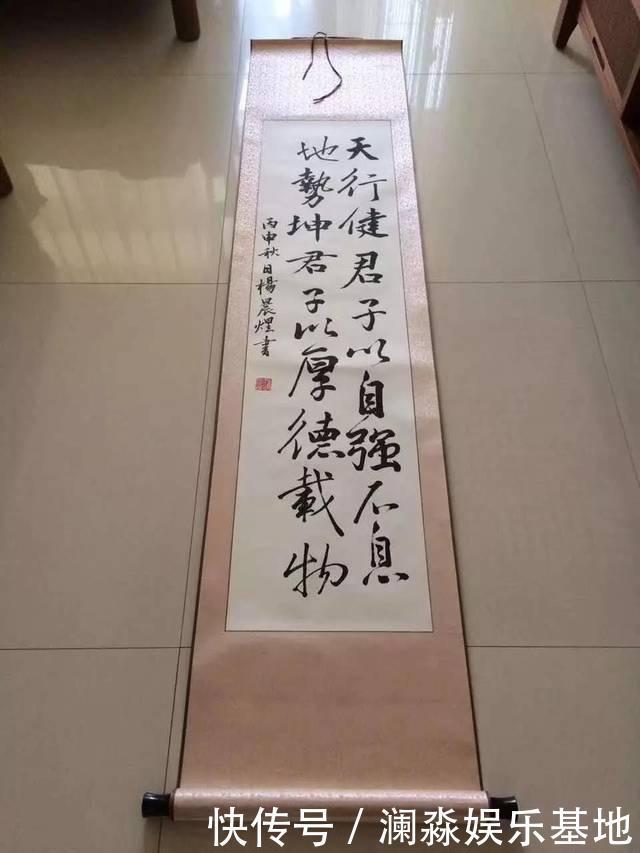 天行健君子以自强不息
地勢坤君子以厚德載物
丙申秋日楊晨煜書
快传号 / 澜淼娱乐基地